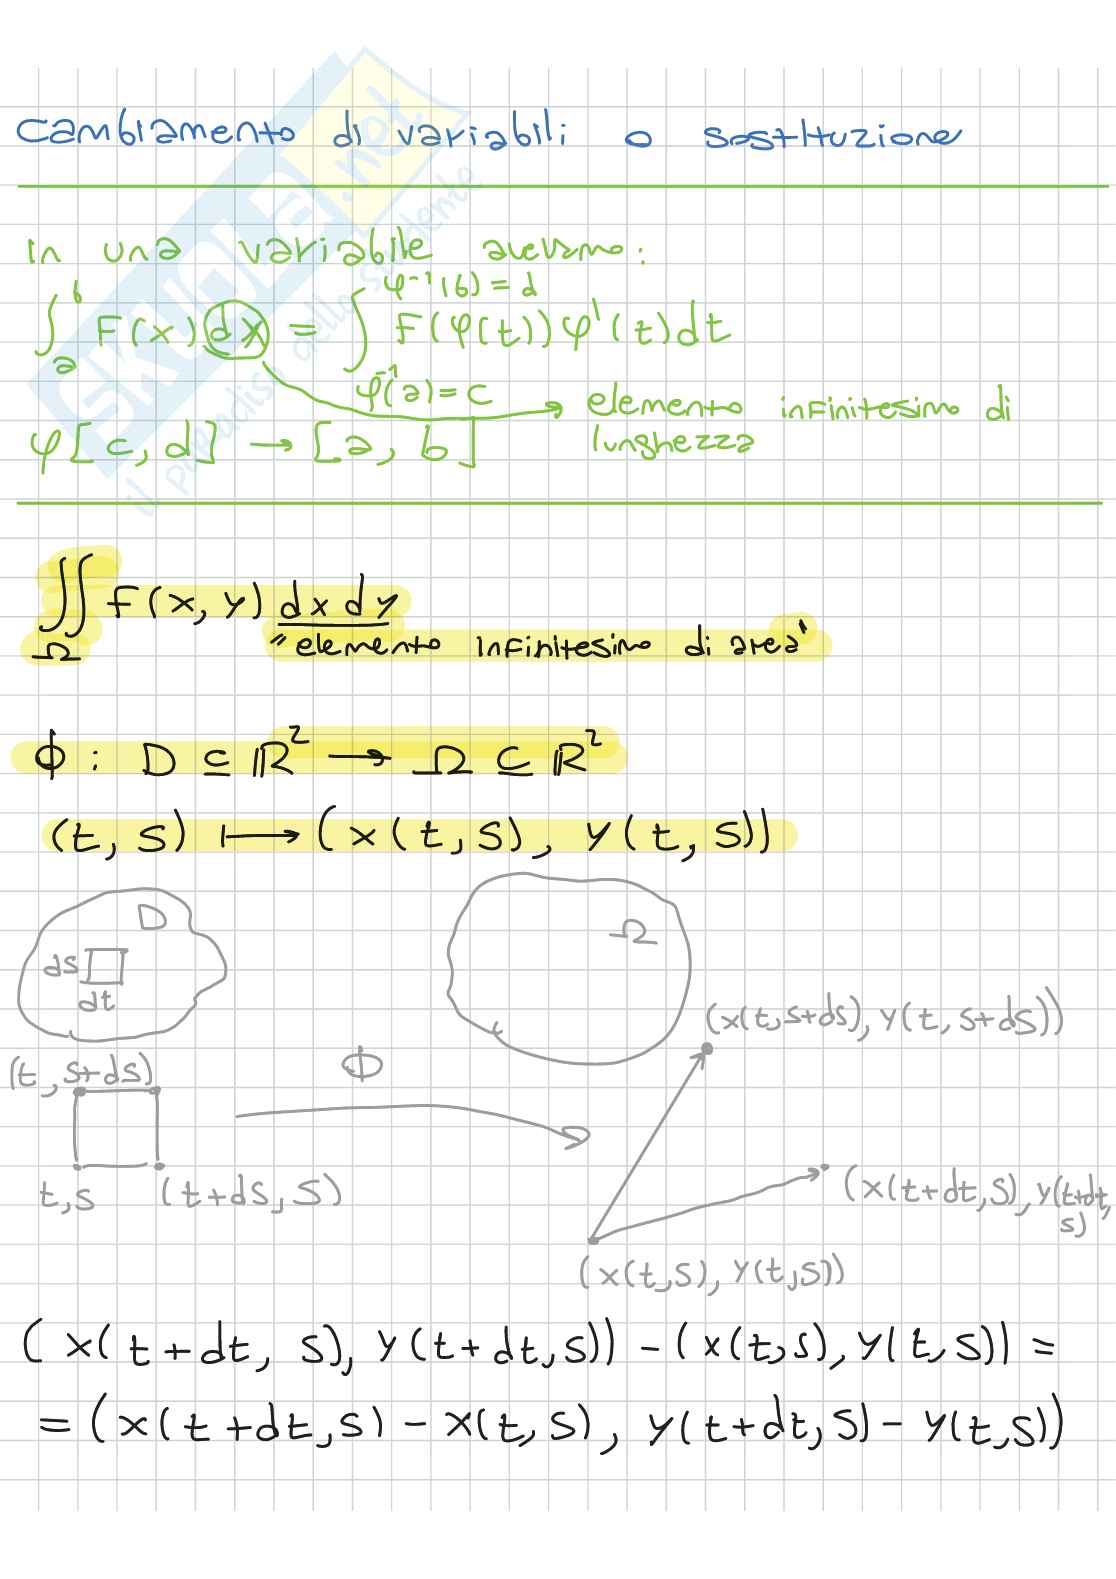 Cambiamento di variabili o sostituzione
In una variabile avevamo:
∫_a^b F(x) dx = ∫_{φ⁻¹(a)=c}^{φ⁻¹(b)=d} F(φ(t)) φ'(t) dt
elemento infinitesimo di
lunghezza
φ[c, d] → [a, b]
∬_Ω F(x, y) dx dy
"elemento infinitesimo di area"
Φ : D ⊆ ℝ² → Ω ⊆ ℝ²
(t, s) ↦ (x(t, s), y(t, s))
D
ds
dt
Ω
(t, s+ds)
Φ
t,s
(t+ds, s)
(x(t,s+ds), y(t, s+ds))
(x(t+dt,s), y(t+dt,
s)
(x(t,s), y(t,s))
(x(t+dt, s), y(t+dt,s)) - (x(t,s), y(t,s)) =
= (x(t+dt,s) - x(t,s), y(t+dt,s) - y(t,s))
SKUOLA.net
il paradiso dello studente